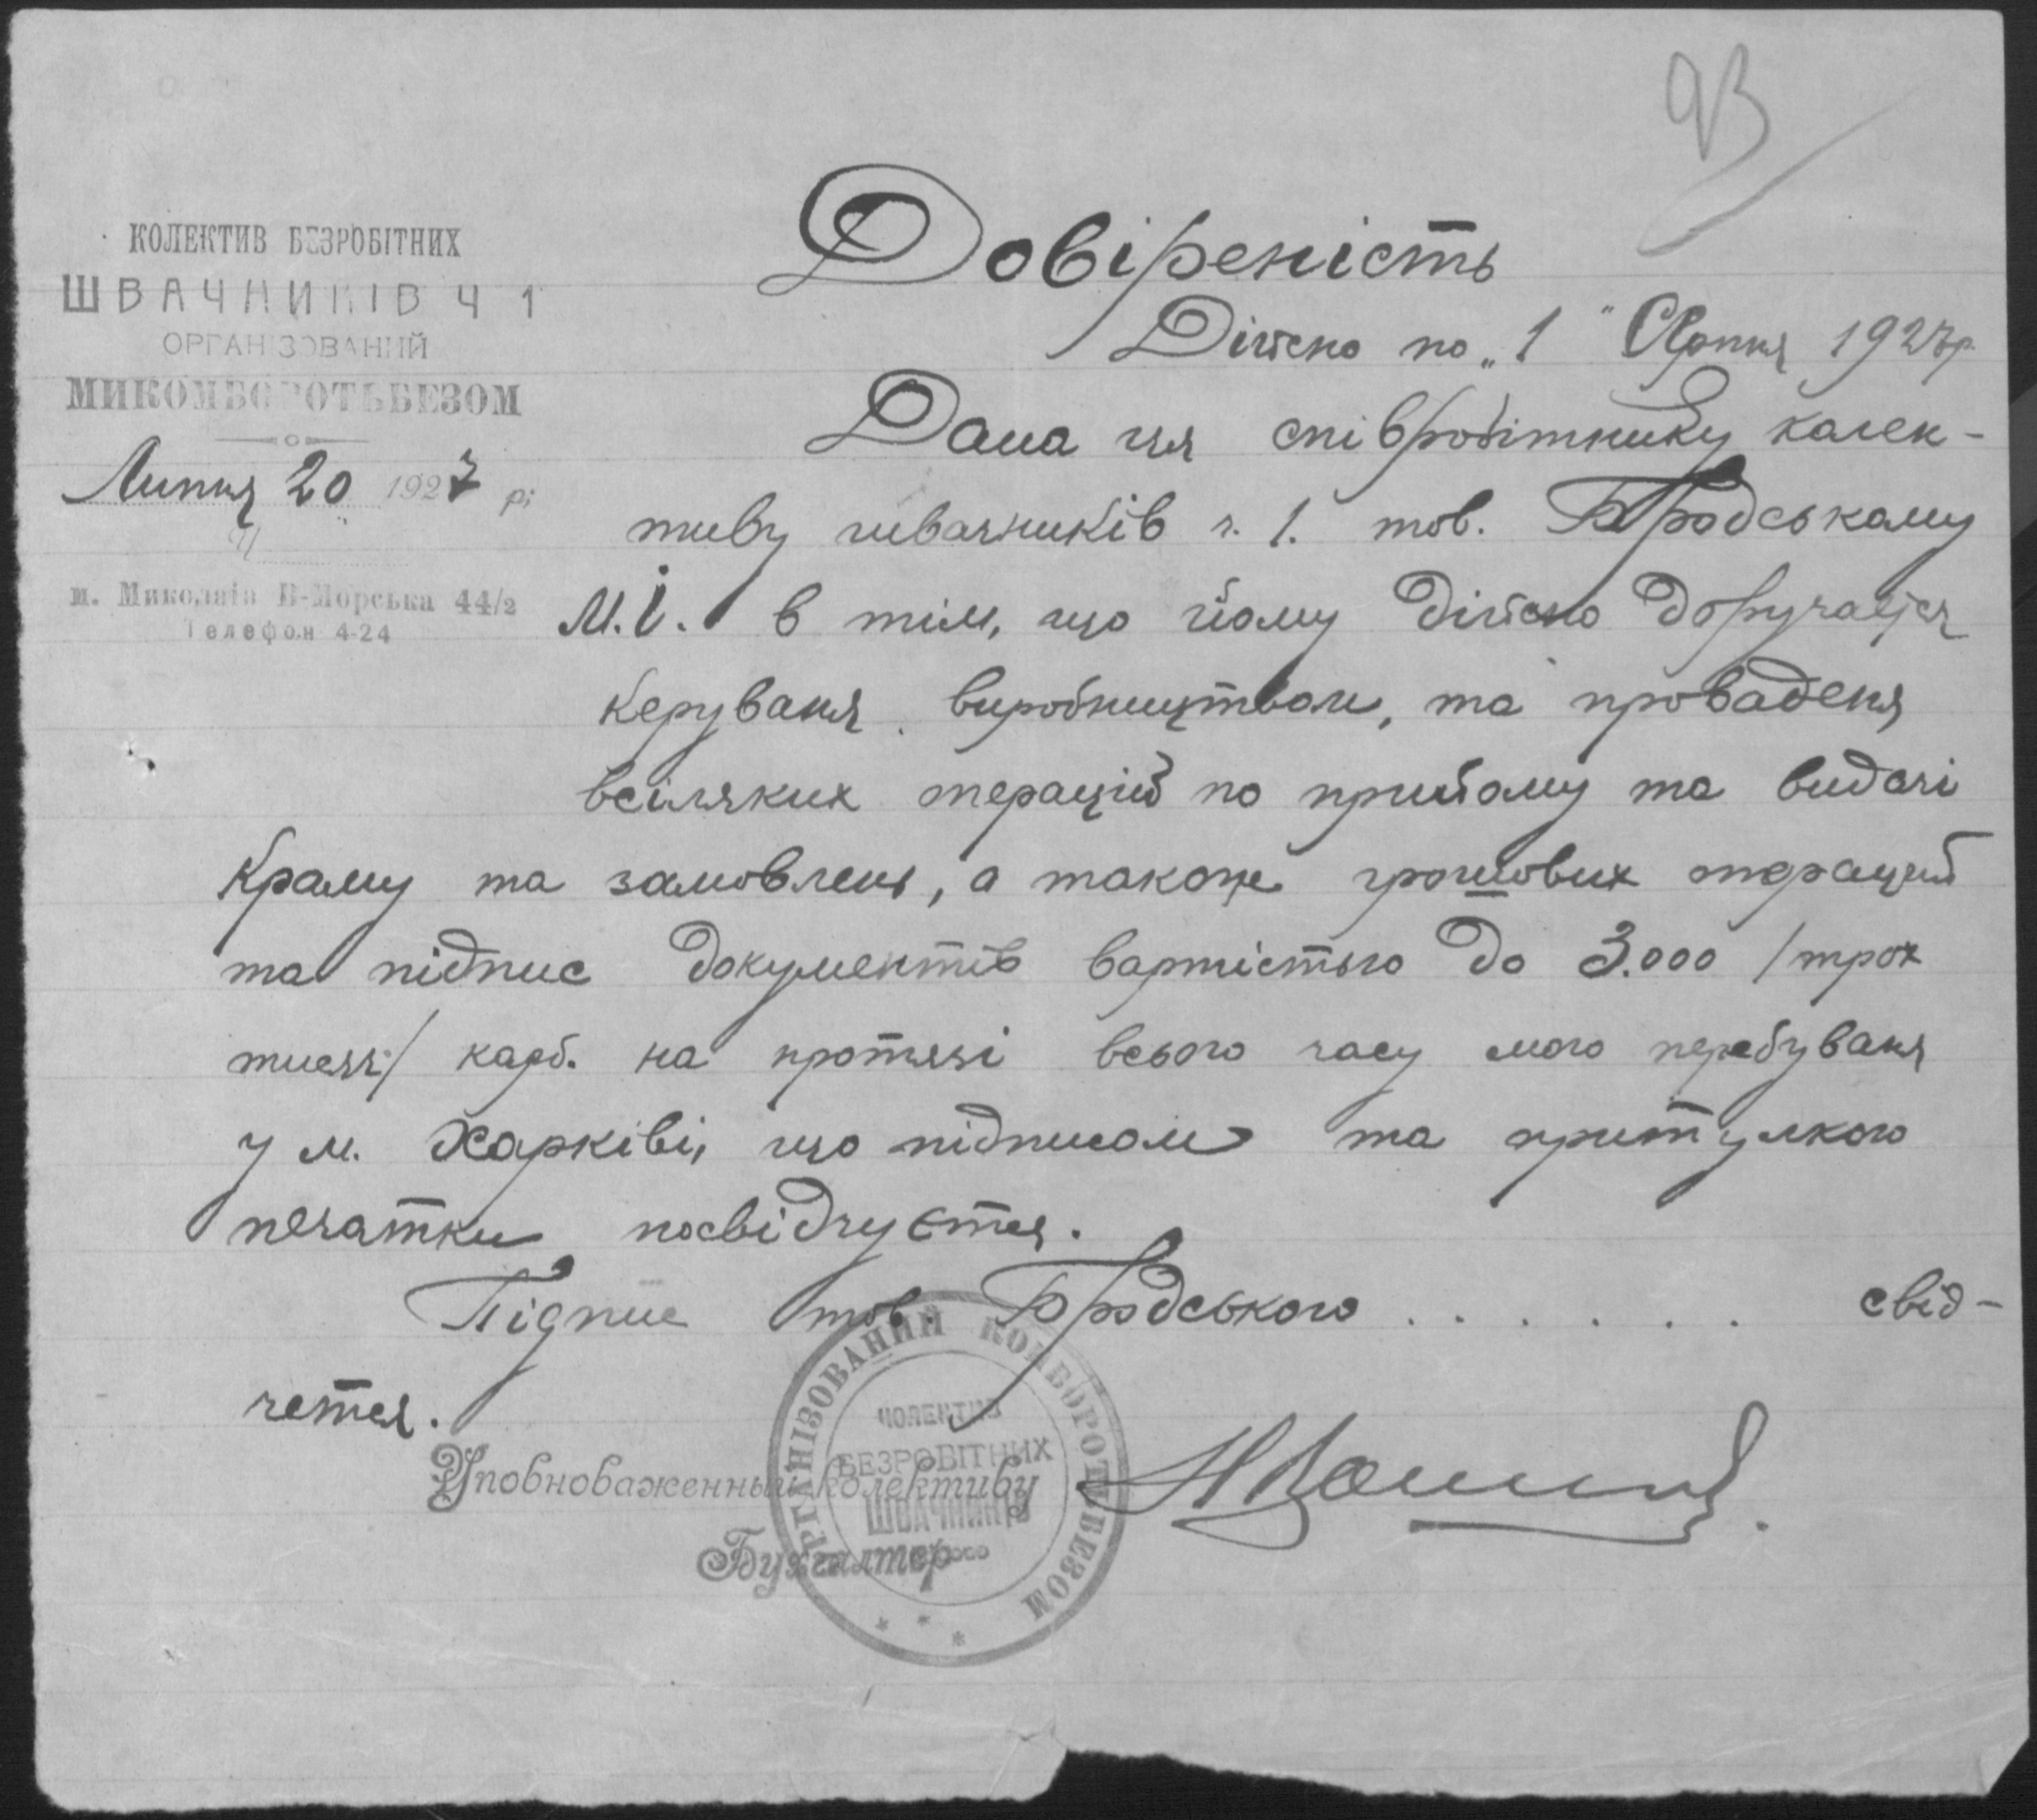 93
КОЛЕКТИВ БЕЗРОБІТНИХ
ШВАЧНИКІВ Ч 1
ОРГАНІЗОВАНИЙ
МИКОМБОРОТЬБЕЗОМ
Липня 20 1927 р;
Ч
м. Миколаїв В-Морська 44/2
Телефон 4-24
Довіреність
Дійсно по „1" Серпня 1927р.
Дана ця співробітнику колек-
тиву швачників ч. 1. тов. Бродському
М.І. в тім, що йому дійсно доручается
керуваня виробництвом, та провадення
всіляких операцій по прийому та видачі
краму та замовлень, а також грошових операцій
та підпис документів вартістью до 3.000 /трох
тисяч/ карб. на протязі всього часу мого перебуваня
у м. Харківі, що підписом та притулкою
печатки посвідчуется.
Підпис тов. Бродського . . . . . . свід-
чется.
Уповноваженный колективу
Бухгалтер
ОРГАНІЗОВАНИЙ КОМБОРОТЬБЕЗОМ
КОЛЕКТИВ
БЕЗРОБІТНИХ
ШВАЧНИКІВ